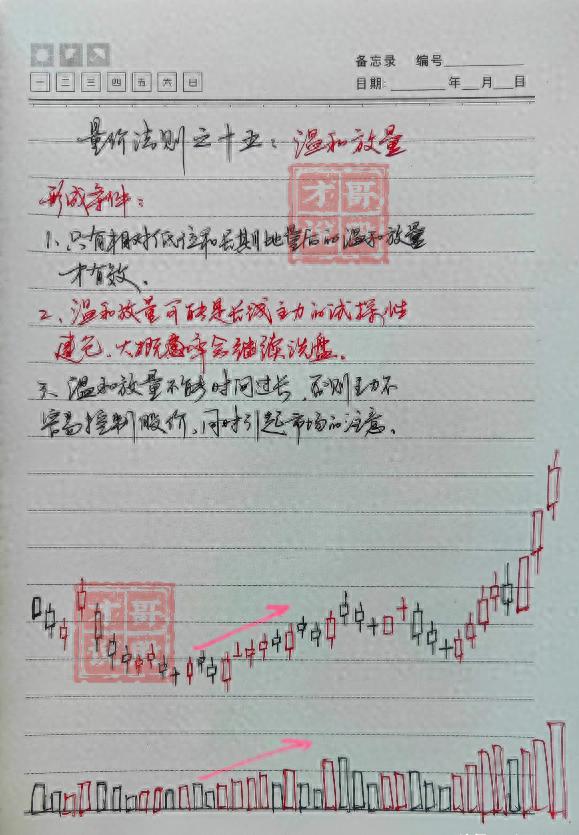 备忘录 编号
一 二 三 四 五 六 日
日期: 年 月 日
量价法则之十五：温和放量
形成条件：
1、只有相对低位和长期地量后的温和放量
才有效。
2、温和放量可能是长线主力的试探性
建仓，大概意味会继续洗盘。
3、温和放量不能时间过长，否则主力不
容易控制股价，同时引起市场的注意。
才哥
才哥